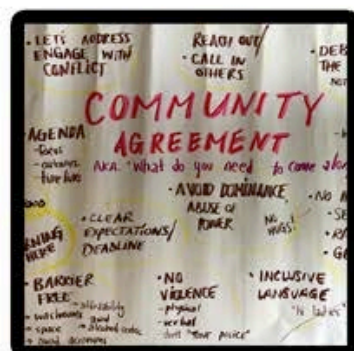 • LET'S ADDRESS
ENGAGE WITH
CONFLICT
REACH OUT/
• CALL IN
OTHERS
• DEB
THE
COMMUNITY
AGREEMENT
AKA. "What do you need to come
AGENDA
- focus
- outcomes
- timeline
• AVOID DOMINANCE
ABUSE OF
POWER
NO
HUGS!
• NO
• CLEAR
EXPECTATIONS/
DEADLINE
RNING
HERE
• BARRIER
FREE
- space
- avoid acronyms
• NO
VIOLENCE
- physical
- verbal
- don't "tone police"
• INCLUSIVE
LANGUAGE
"hi ladies"